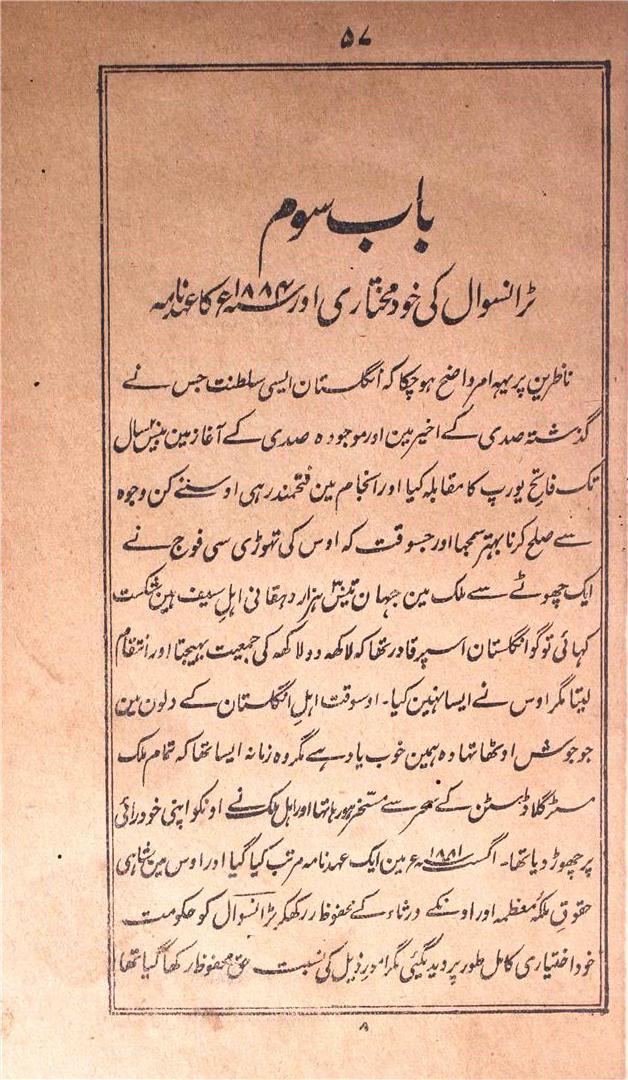 ۵۷
باب سوم
ٹرانسوال کی خودمختاری اور ۱۸۸۴ء کا عہدنامہ
ناظرین پر یہہ امر واضح ہوچکا کہ انگلستان ایسی سلطنت جس نے
گذشتہ صدی کے اخیر مین اور موجودہ صدی کے آغاز مین بیس ۲۰ سال
تک فاتح یورپ کا مقابلہ کیا اور انجام مین فتحمند رہی اوسنے کن وجوہ
سے صلح کرنا بہتر سمجہا اور جسوقت کہ اوس کی تہوڑی سی فوج نے
ایک چھوٹے سے ملک مین جہان تیس ۳۰ ہزار دہقانی اہل سیف ہین شکست
کہائی تو گو انگلستان اسپر قادر تھا کہ لاکھہ دولاکھہ کی جمعیت بہیجتا اور انتقام
لیتا مگر اوس نے ایسا نہین کیا۔ اوسوقت اہل انگلستان کے دلون مین
جو جوش اوٹھا تھا وہ ہمین خوب یاد ہے مگر وہ زمانہ ایسا تھا کہ تمام ملک
مسٹر گلاڈسٹن کے سحر سے مسخر ہو رہا تھا اور اہل ملک نے اونکو اپنی خودرائی
پر چھوڑ دیا تھا۔ اگست ۱۸۸۱ء مین ایک عہدنامہ مرتب کیا گیا اور اوس مین شاہی
حقوق ملکۂ معظمہ اور اونکے ورثاء کے محفوظ رکھکر ٹرانسوال کو حکومت
خود اختیاری کامل طور پر دیدیگئی مگر امور ذیل کی نسبت حق محفوظ رکھا گیا تھا
۸